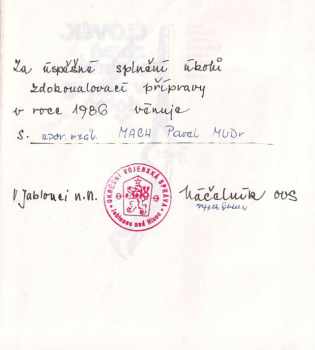 Za úspěšné splnění úkolů
zdokonalovací přípravy
v roce 1986 věnuje
s. MACH Pavel MUDr
V Jablonci n.N. Náčelník OVS
OKRESNÍ VOJENSKÁ SPRÁVA
Jablonec nad Nisou